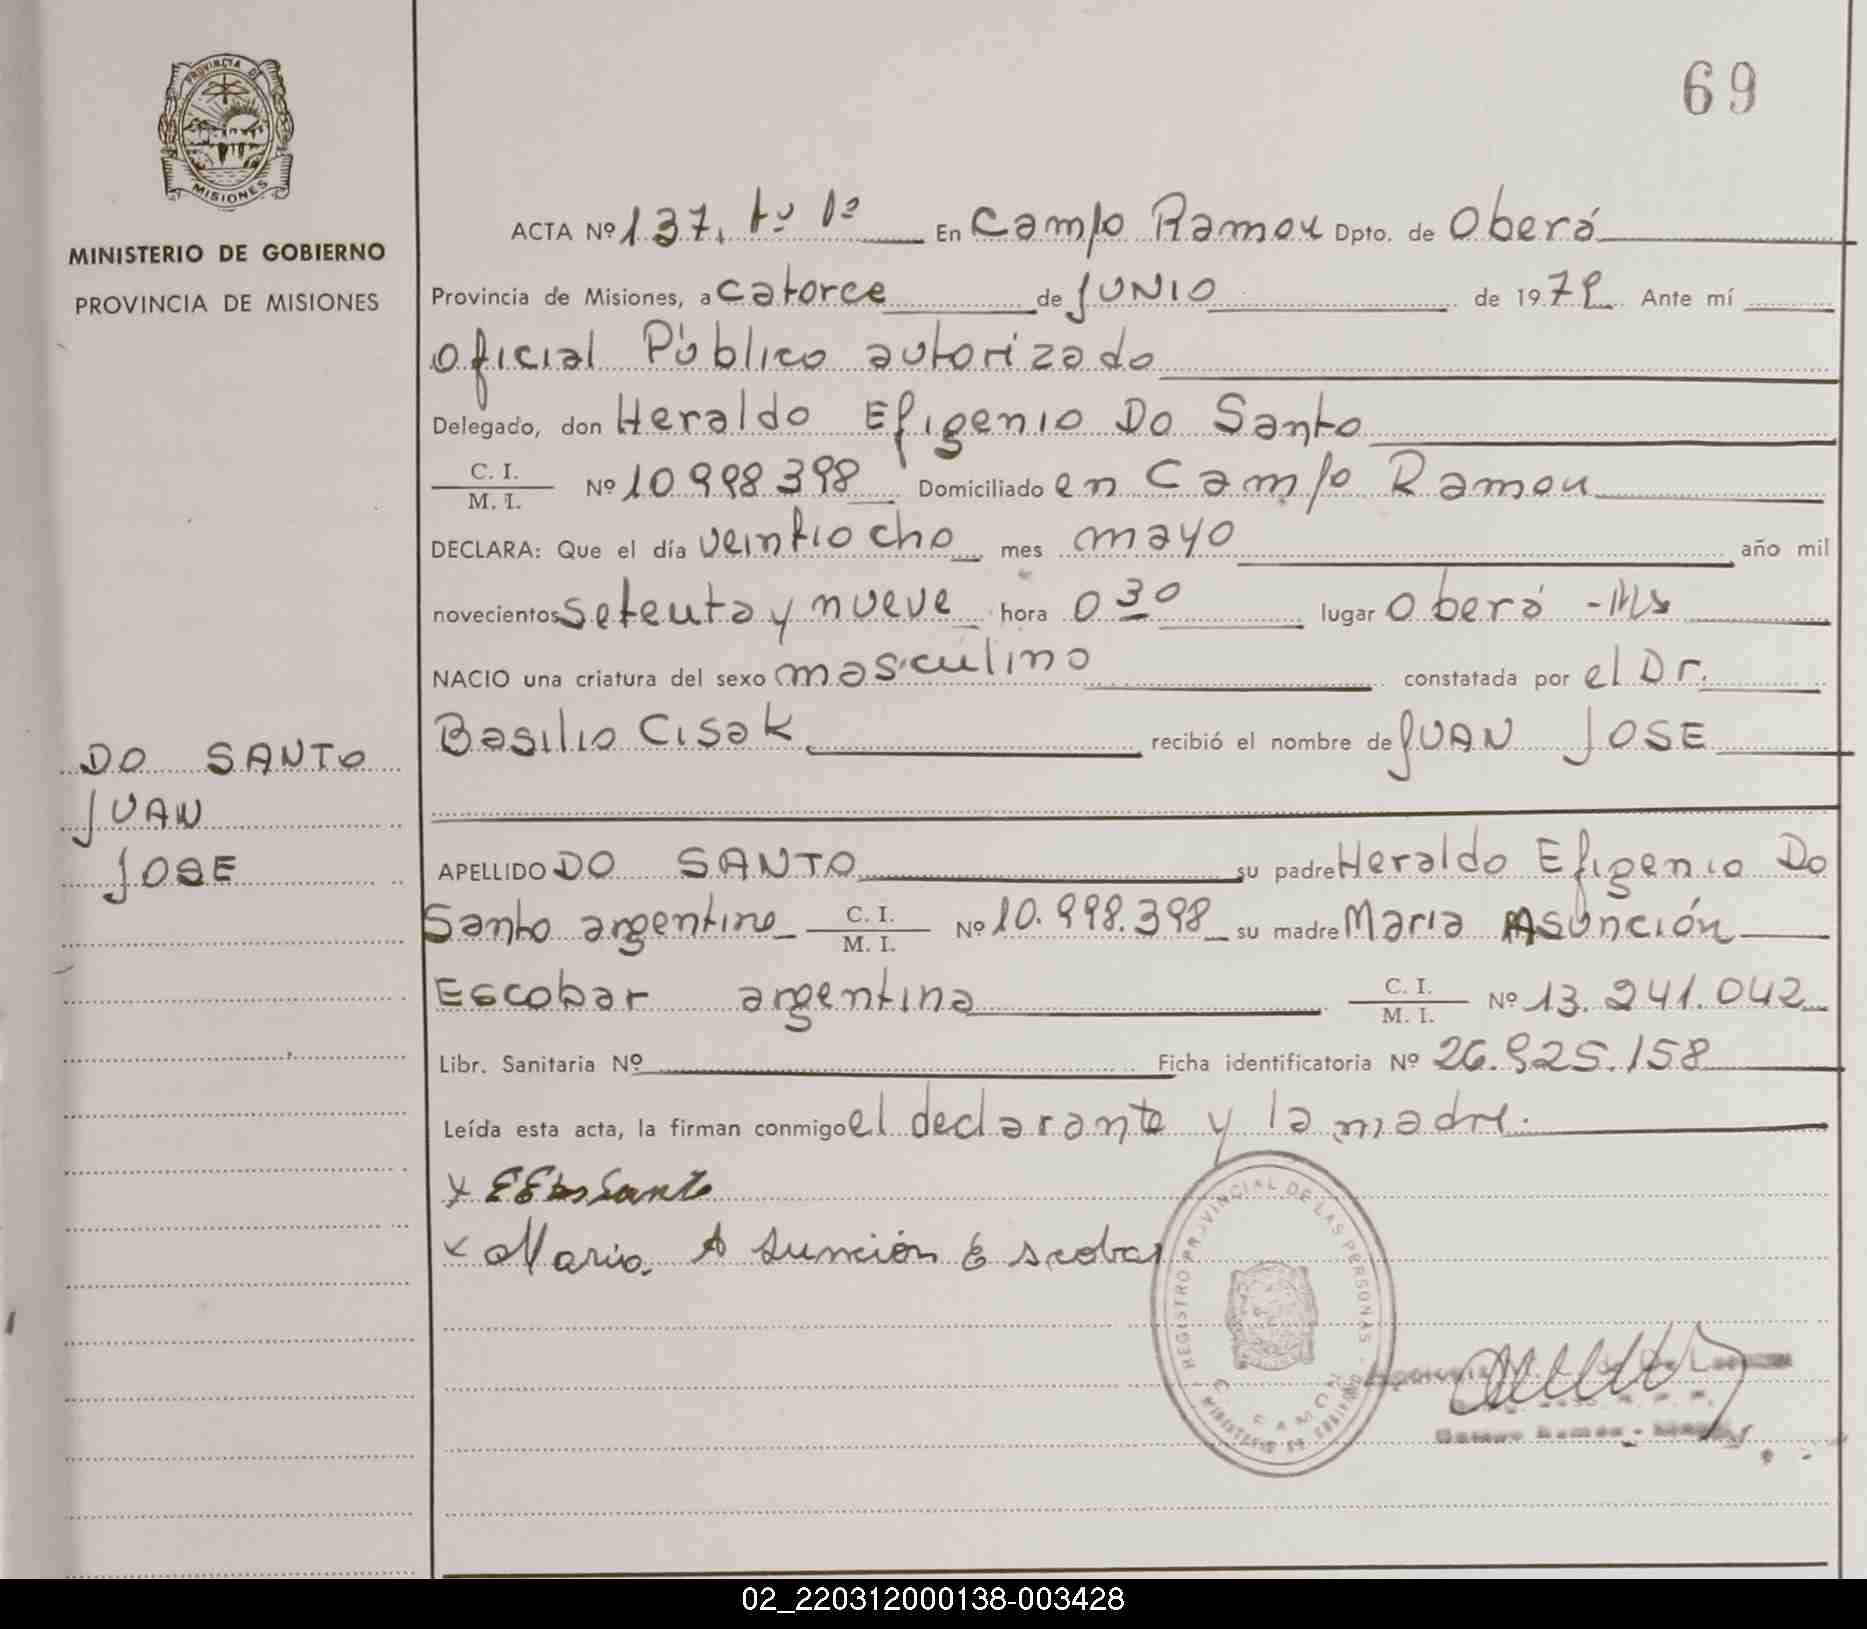 69
PROVINCIA DE
MISIONES
MINISTERIO DE GOBIERNO
PROVINCIA DE MISIONES
ACTA Nº 137. tº 1º En Campo Ramon Dpto. de Oberá
Provincia de Misiones, a catorce de JUNIO de 1979 Ante mí
Oficial Público autorizado
Delegado, don Heraldo Efigenio Do Santo
C. I.
M. I. Nº 10.998.398 Domiciliado en Campo Ramon
DECLARA: Que el día veintiocho mes mayo año mil
novecientos setenta y nueve hora 0 30 lugar Oberá - Ms
NACIO una criatura del sexo masculino constatada por el Dr.
Basilio Cisak recibió el nombre de JUAN JOSE
DO SANTO
JUAN
JOSE
APELLIDO DO SANTO su padre Heraldo Efigenio Do
Santo argentino C. I.
M. I. Nº 10.998.398 su madre Maria Asunción
Escobar argentina C. I.
M. I. Nº 13.241.042
Libr. Sanitaria Nº Ficha identificatoria Nº 26.925.158
Leída esta acta, la firman conmigo el declarante y la madre.
x Maria Asunción Escobar
REGISTRO PROVINCIAL DE LAS PERSONAS
MINISTERIO DE GOBIERNO
02_220312000138-003428